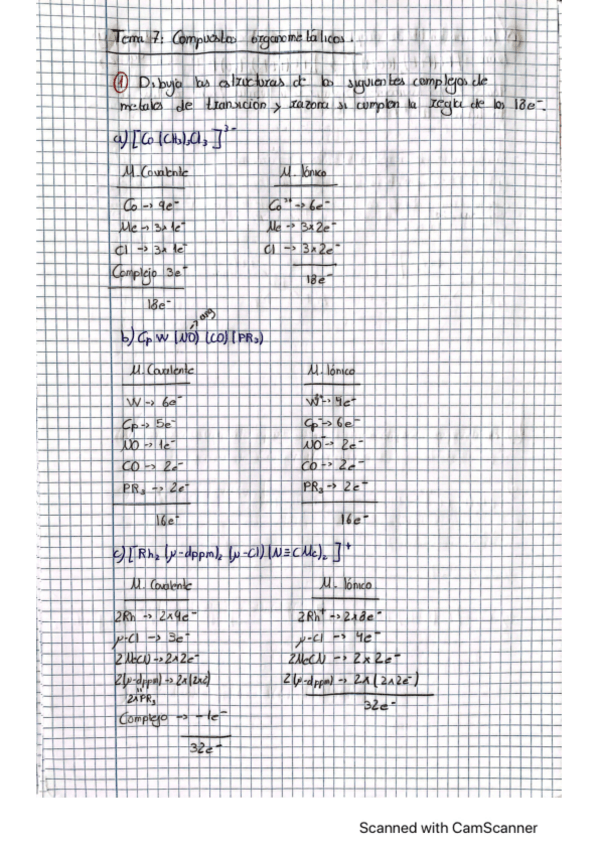 Tema 7: Compuestos organometálicos.
① Dibuja las estructuras de los siguientes complejos de
metales de transición y razona si cumplen la regla de los 18e⁻.
a) [Co(CH₃)₃Cl₃]³⁻
M. Covalente M. Iónico
Co → 9e⁻ Co³⁺ → 6e⁻
Me → 3x1e⁻ Me → 3x2e⁻
Cl → 3x1e⁻ Cl → 3x2e⁻
Complejo 3e⁻
18e⁻ 18e⁻
b) CpW(NO)(CO)(PR₃)
→ ang
M. Covalente M. Iónico
W → 6e⁻ W²⁺ → 4e⁻
Cp → 5e⁻ Cp⁻ → 6e⁻
NO → 1e⁻ NO⁻ → 2e⁻
CO → 2e⁻ CO → 2e⁻
PR₃ → 2e⁻ PR₃ → 2e⁻
16e⁻ 16e⁻
c) [Rh₂(μ-dppm)₂(μ-Cl)(N≡CMe)₂]⁺
M. Covalente M. Iónico
2Rh → 2x9e⁻ 2Rh⁺ → 2x8e⁻
μ-Cl → 3e⁻ μ-Cl → 4e⁻
2MeCN → 2x2e⁻ 2MeCN → 2x2e⁻
2(μ-dppm) → 2x(2x2) 2(μ-dppm) → 2x(2x2e⁻)
2xPR₃
Complejo → -1e⁻ 32e⁻
32e⁻
Scanned with CamScanner